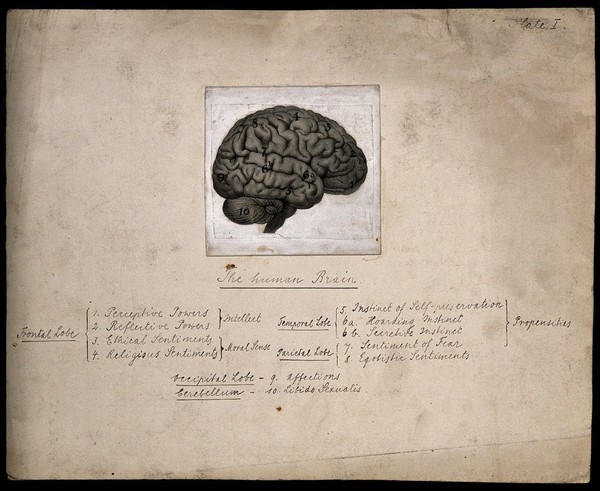 Plate I.
The human Brain.
Frontal Lobe
1. Perceptive Powers
2. Reflective Powers
Intellect
3. Ethical Sentiments
4. Religious Sentiments
Moral Sense
Temporal Lobe
5. Instinct of Self-preservation
6a. Hoarding Instinct
6b. Secretive Instinct
Parietal Lobe
7. Sentiment of Fear
8. Egotistic Sentiments
Propensities
Occipital Lobe - 9. Affections
Cerebellum - 10. Libido Sexualis